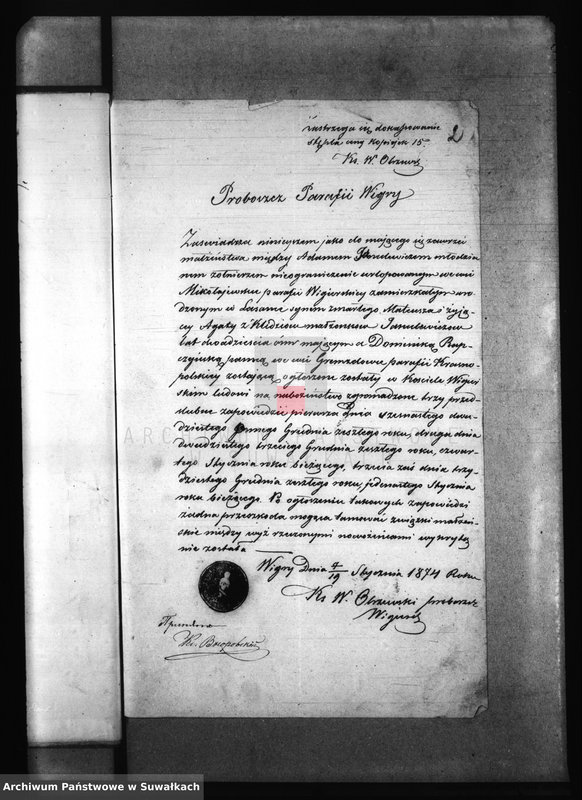 zastrzega się dokassowanie
stępla ceny kopiejek 15.
Ks. W. Olszews
2
Proboszcz Parafii Wigry
Zaświadcza niniejszem jako do mającego się zawrzeć
małżeństwa między Adamem młodzia
nem żołnierzem nieograniczenie urlopowanym we wsi
Mikołajewsku parafii Wigierskiej zamieszkałym uro
dzonym w synem zmarłego Mateusza i żyją
cy Agaty z małżonków Janulewiczów
lat dwadzieścia ośm mającym a Dominiką Rup
czyńską panną we wsi Gremzdowie parafii Krasno
polskiej zostającą ogłoszone zostały w Kościele Wigier
skim ludowi na nabożeństwo zgromadzone trzy przed
ślubne zapowiedzie pierwsza Dnia szesnastego dwu
dziestego ósmego Grudnia zeszłego roku, druga dnia
dwudziestego trzeciego Grudnia zeszłego roku, czwar
tego Stycznia roku bieżącego, trzecia zaś dnia trzy
dziestego Grudnia zeszłego roku, jedenastego Stycznia
roku bieżącego. Po ogłoszeniu takowych zapowiedzi
żadna przeszkoda mogąca tamować związki małżeń
skie między wyż rzeczonymi nowożeńcami wykrytą
nie została
Wigry Dnia 7/19 Stycznia 1874 Roku
Ks W. Olszewski proboszcz
Wigiersk
Кс.
ARCH
Archiwum Państwowe w Suwałkach